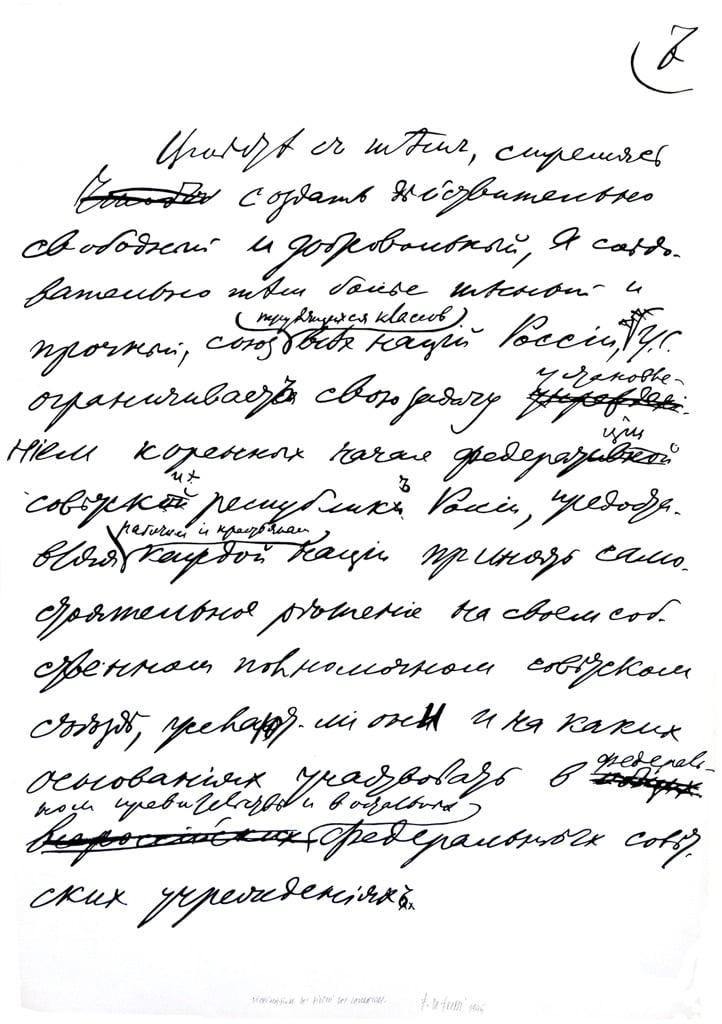 Вмѣстѣ съ тѣм, стремясь
создать дѣйствительно
свободный и добровольный, а слѣдо-
вательно тѣм болѣе тѣсный и
трудящихся классов
прочный, союз всѣх націй Россіи, У.С.
ограничивает свою задачу
установле-
ніем коренных начал федерац
іи
совѣтских республикъ Россіи, предоста-
рабочим и крестьянам
вляя каждой націи принять само-
стоятельное рѣшеніе на своем соб-
ственном полномочном совѣтском
съѣздѣ, желают-ли они и на каких
основаніях участвовать в федераль-
ном правительствѣ и в остальных
всероссійских федеральных совѣт-
ских учрежденіях.